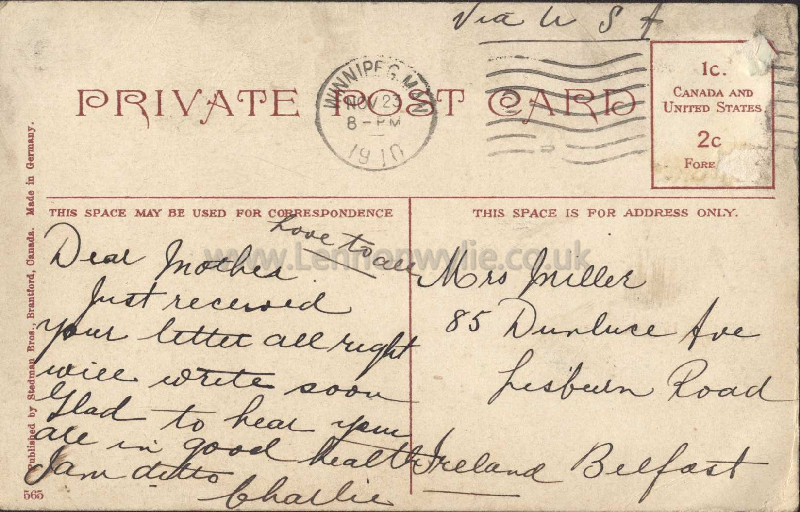 Via U S A
PRIVATE POST CARD
WINNIPEG, MAN
NOV 23
8 - PM
1910
1c.
CANADA AND
UNITED STATES
2c
FORE
THIS SPACE MAY BE USED FOR CORRESPONDENCE
THIS SPACE IS FOR ADDRESS ONLY.
www.Lennonwylie.co.uk
Love to all
Dear Mother
Just received
your letter all right
will write soon
Glad to hear your
all in good health
I am ditto
Charlie
Mrs Miller
85 Dunluce Ave
Lisburn Road
Ireland Belfast
Published by Stedman Bros., Brantford, Canada. Made in Germany.
565